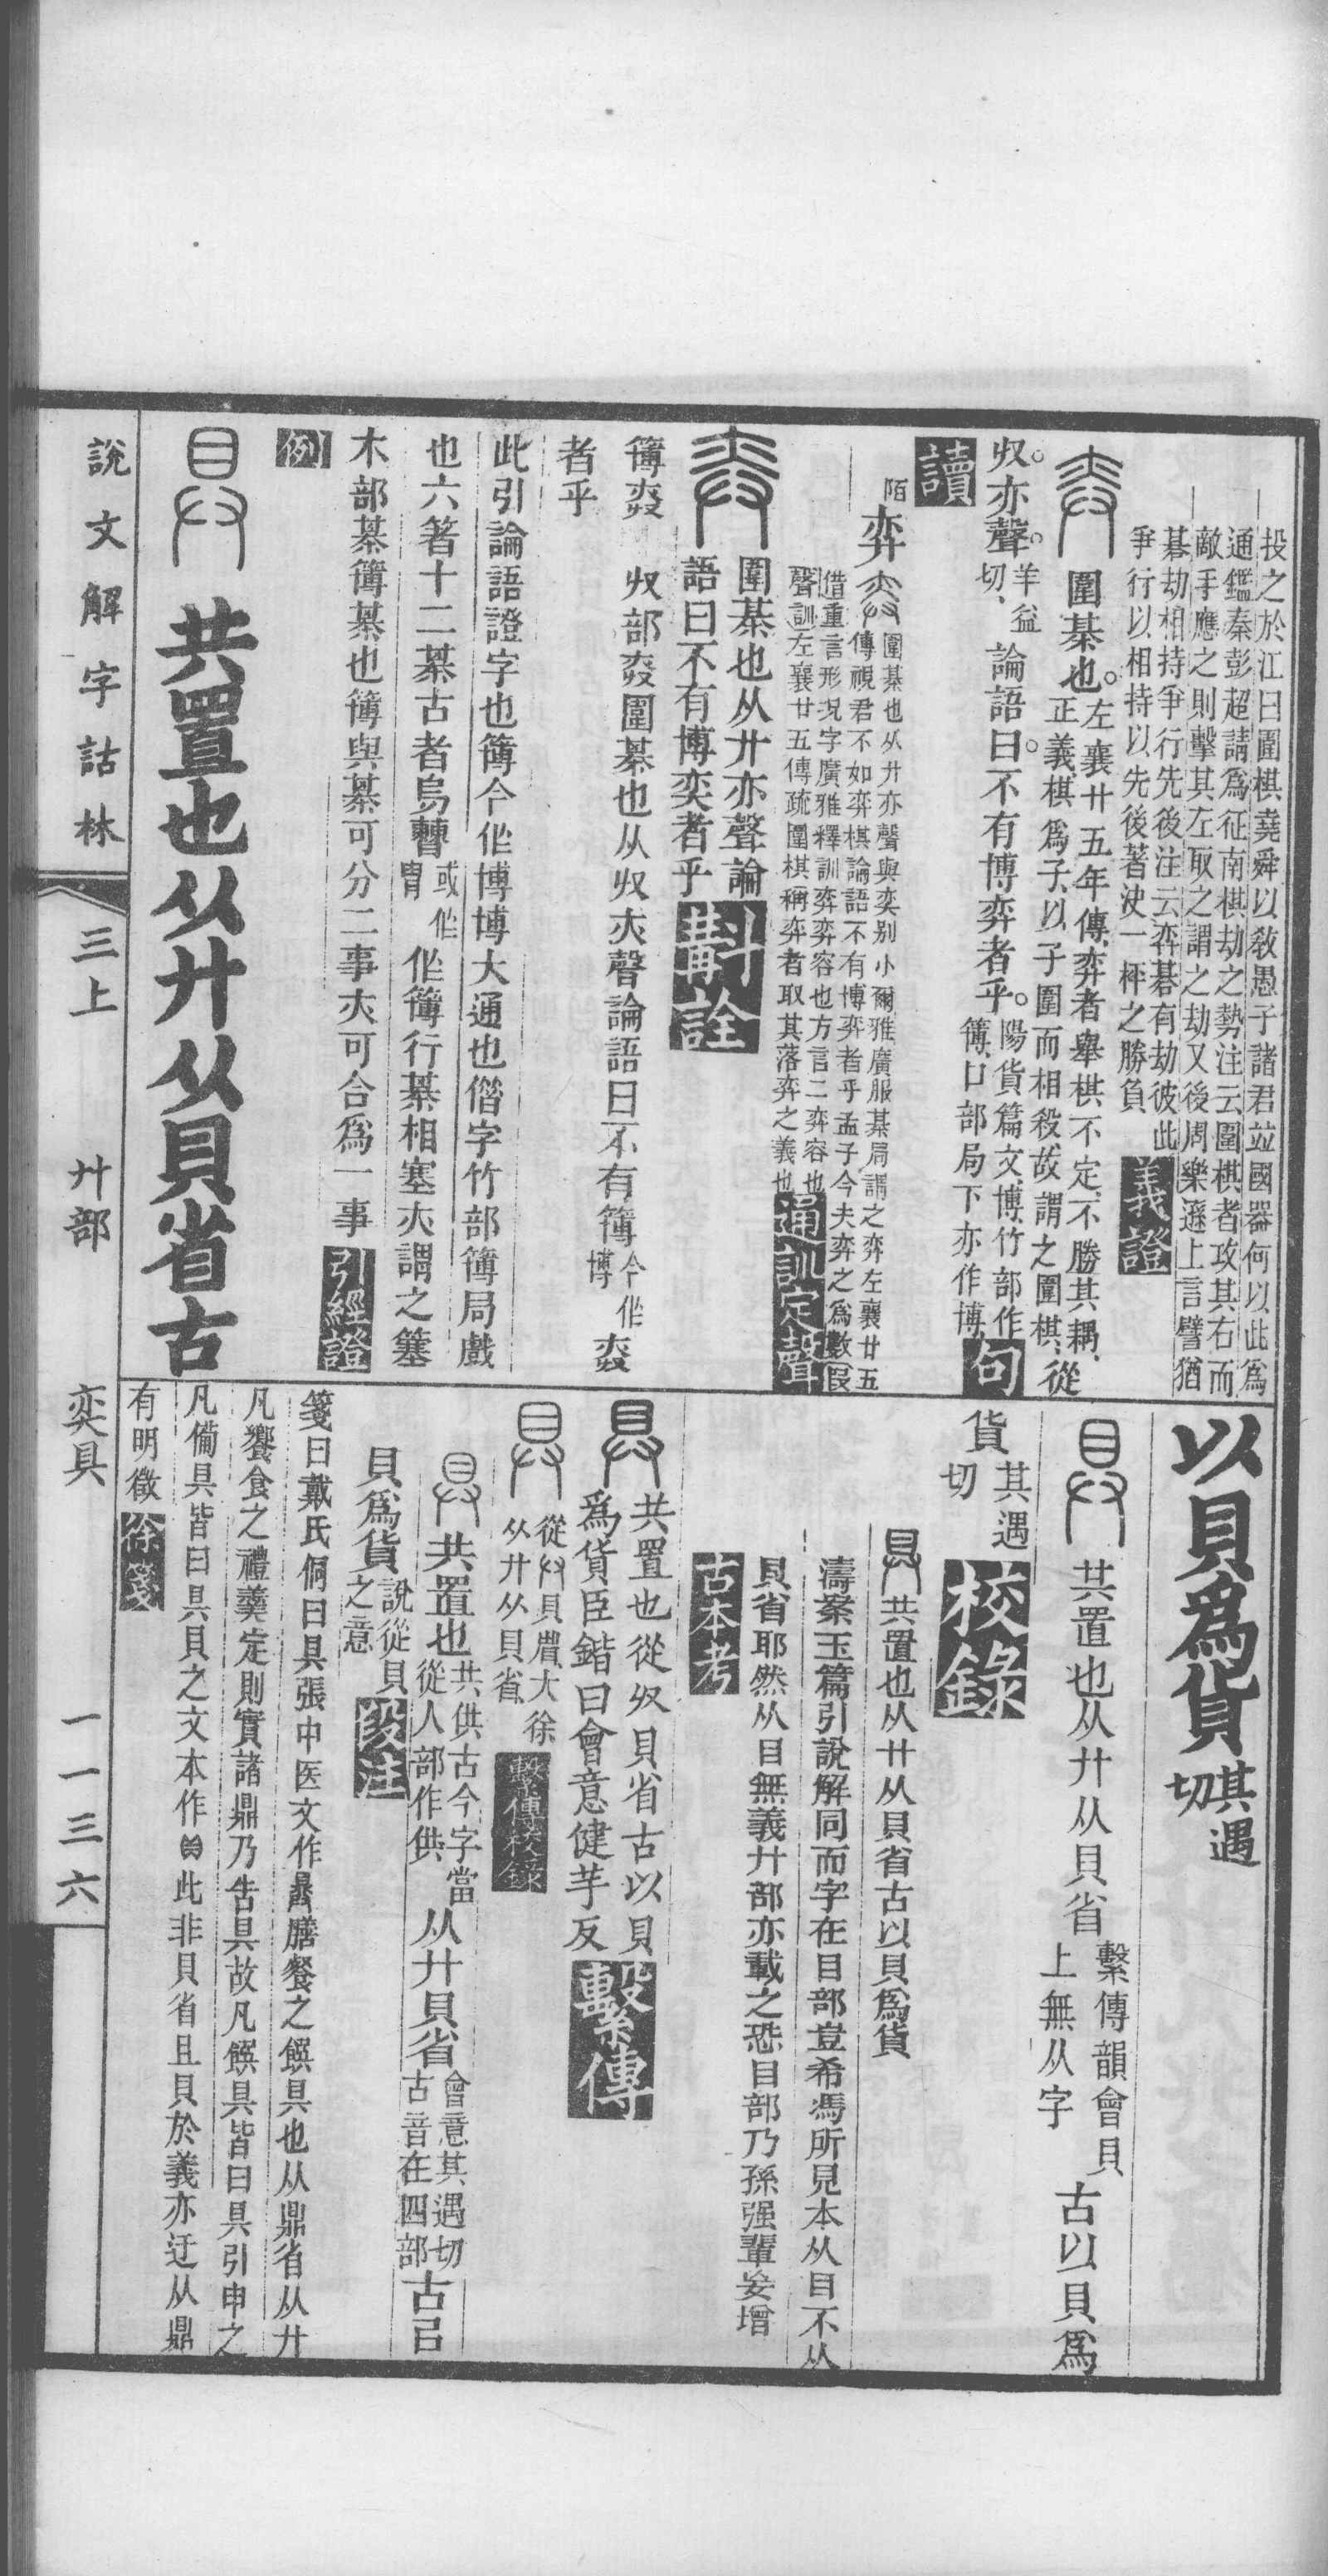 投之於江曰圍棋堯舜以敎愚子諸君竝國器何以此爲
通鑑秦彭超請爲征南棋劫之勢注云圍棋者攻其右而
敵手應之則擊其左取之謂之劫又後周樂遜上言譬猶
碁劫相持爭行先後注云弈碁有劫彼此
爭行以相持以先後著決一枰之勝負
義證
圍棊也。左襄廿五年傳、弈者舉棋不定、不勝其耦、
正義、棋爲子、以子圍而相殺、故謂之圍棋、從
廾。亦聲。羊益切、論語曰。不有博弈者乎。陽貨篇文、博、竹部作
簿、口部局下亦作博
句
讀
弈
圍棊也从廾亦聲與奕別小爾雅廣服棊局謂之弈左襄廿五
傳視君不如弈棋論語不有博弈者乎孟子今夫弈之爲數叚
借重言形況字廣雅釋訓弈弈容也方言二弈容也
聲訓左襄廿五傳疏圍棋稱弈者取其落弈之義也
通訓定聲
圍棊也从廾亦聲論
語曰不有博奕者乎
斠詮
簿弈 廾部弈圍棊也从廾亦聲論語曰不有簿今作博弈
者乎
此引論語證字也簿今作博博大通也僭字竹部簿局戲
也六箸十二棊古者烏曹或作胄作簿行棊相塞亦謂之簺
木部棊簿棊也簿與棊可分二事亦可合爲一事
引經證
例
共置也从廾从貝省古
說文解字詁林 三上 廾部 弈具 一一三六
以貝爲貨其遇切
共置也从廾从貝省繫傳韻會貝上無从字古以貝爲
貨其遇切
校錄
共置也从廾从貝省古以貝爲貨
濤案玉篇引說解同而字在目部豈希馮所見本从目不从
貝省耶然从目無義廾部亦載之恐目部乃孫强輩妄增
古本考
共置也從廾貝省古以貝
爲貨臣鍇曰會意健芋反
繫傳
從廾貝省大徐
从廾从貝省
繫傳校錄
共置也共供古今字當從人部作供从廾貝省會意其遇切古音在四部古㠯
貝爲貨說從貝之意
段注
箋曰戴氏侗曰具張中医文作膳餐之饌具也从鼎省从廾
凡饔食之禮羹定則實諸鼎乃告具故凡饌具皆曰具引申之
凡備具皆曰具貝之文本作此非貝省且貝於義亦迂从鼎
有明徵
徐箋